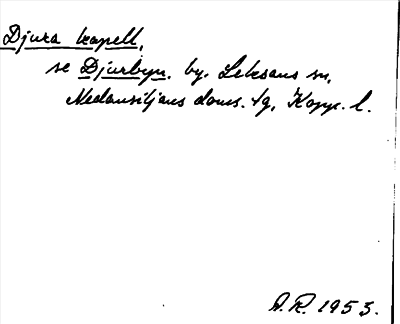 Djura kapell,
se Djurbyn. by. Leksans sn,
Nedansiljans doms. tg, Kopp. l.
D.R. 1953.